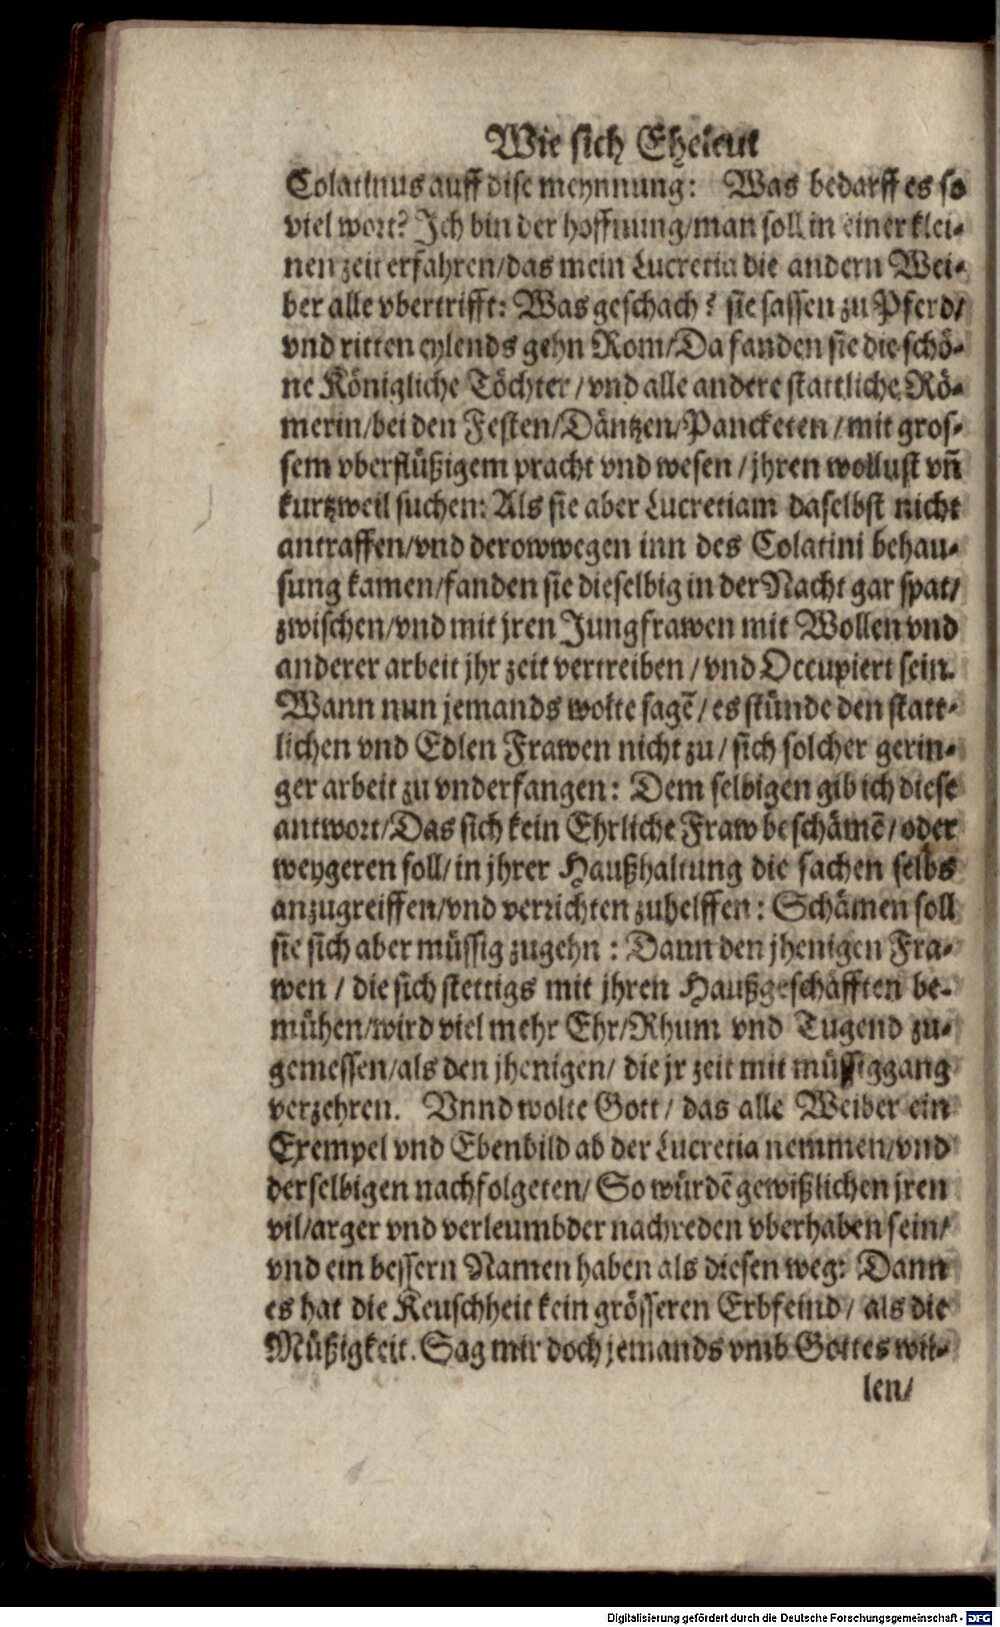 Wie sich Eheleut
Colatinus auff dise meynnung: Was bedarff es so
viel wort? Ich bin der hoffnung/man soll in einer klei-
nen zeit erfahren/das mein Lucretia die andern Wei-
ber alle vbertrifft: Was geschach? sie sassen zu Pferd/
vnd ritten eylends gehn Rom/Da fanden sie die schö-
ne Königliche Töchter/vnd alle andere stattliche Rö-
merin/bei den Festen/Däntzen/Pancketen/mit gros-
sem vberflüßigem pracht vnd wesen/jhren wollust vn̄
kurtzweil suchen: Als sie aber Lucretiam daselbst nicht
antraffen/vnd derowwegen inn des Colatini behau-
sung kamen/fanden sie dieselbig in der Nacht gar spat/
zwischen/vnd mit jren Jungfrawen mit Wollen vnd
anderer arbeit jhr zeit vertreiben/vnd Occupiert sein.
Wann nun jemands wolte sagē/es stünde den statt-
lichen vnd Edlen Frawen nicht zu/sich solcher gerin-
ger arbeit zu vnderfangen: Dem selbigen gib ich diese
antwort/Das sich kein Ehrliche Fraw beschämē/oder
weygeren soll/in jhrer Haußhaltung die sachen selbs
anzugreiffen/vnd verrichten zuhelffen: Schämen soll
sie sich aber müssig zugehn: Dann den jhenigen Fra-
wen/die sich stettigs mit jhren Haußgeschäfften be-
mühen/wird viel mehr Ehr/Rhum vnd Tugend zu-
gemessen/als den jhenigen/die jr zeit mit müssiggang
verzehren. Vnnd wolte Gott/das alle Weiber ein
Exempel vnd Ebenbild ab der Lucretia nemmen/vnd
derselbigen nachfolgeten/So würdē gewißlichen jren
vil/arger vnd verleumbder nachreden vberhaben sein/
vnd ein bessern Namen haben als diesen weg: Dann
es hat die Keuschheit kein grösseren Erbfeind/als die
Müßigkeit. Sag mir doch jemands vmb Gottes wil-
len/
Digitalisierung gefördert durch die Deutsche Forschungsgemeinschaft - DFG